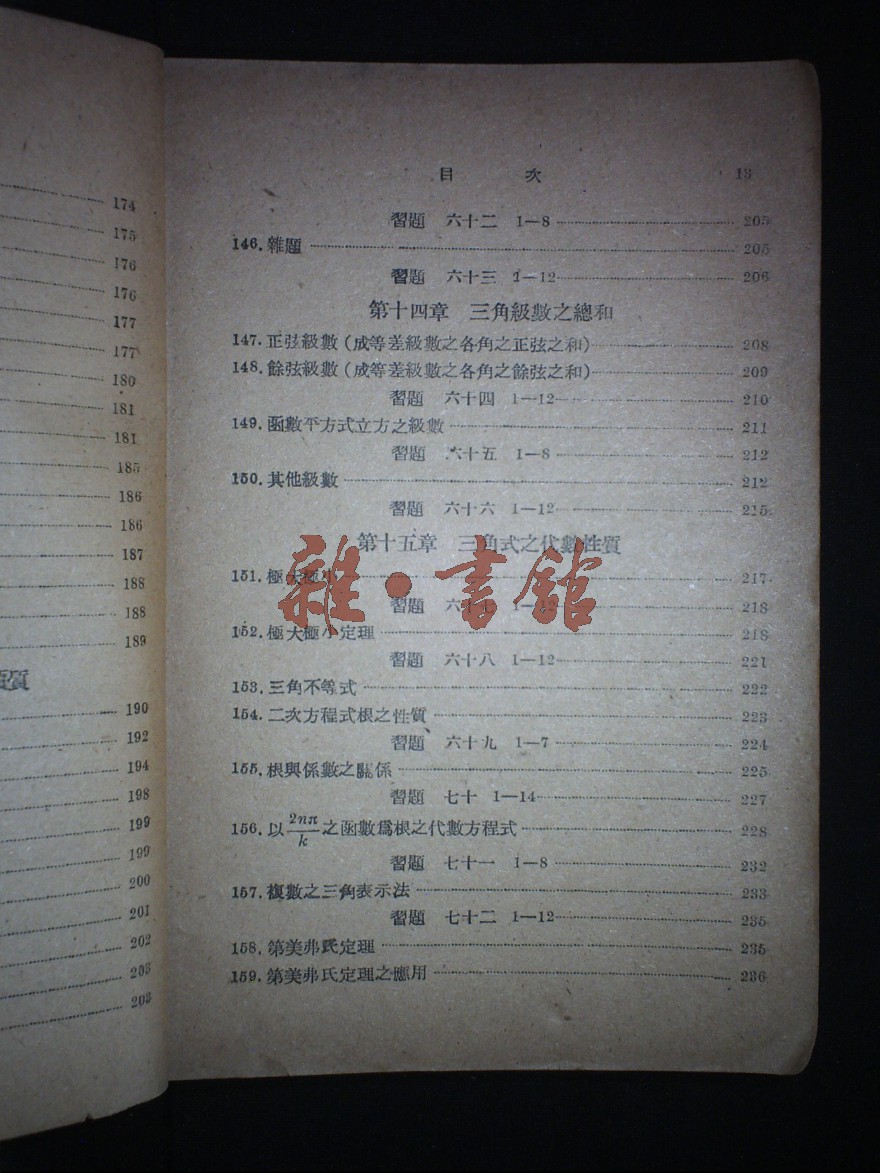 174
175
176
176
177
177
180
181
181
185
186
186
187
188
188
189
質
190
192
194
198
199
199
200
201
202
203
203
目 次 13
習題 六十二 1—8 205
146. 雜題 205
習題 六十三 1—12 206
第十四章 三角級數之總和
147. 正弦級數(成等差級數之各角之正弦之和) 208
148. 餘弦級數(成等差級數之各角之餘弦之和) 209
習題 六十四 1—12 210
149. 函數平方式立方之級數 211
習題 六十五 1—8 212
150. 其他級數 212
習題 六十六 1—12 215
第十五章 三角式之代數性質
151. 極大極小 217
習題 六十七 218
152. 極大極小定理 218
習題 六十八 1—12 221
153. 三角不等式 222
154. 二次方程式根之性質 223
習題 六十九 1—7 224
155. 根與係數之關係 225
習題 七十 1—14 227
156. 以 2nπ/k 之函數爲根之代數方程式 228
習題 七十一 1—8 232
157. 複數之三角表示法 233
習題 七十二 1—12 235
158. 第美弗氏定理 235
159. 第美弗氏定理之應用 236
雜·書館